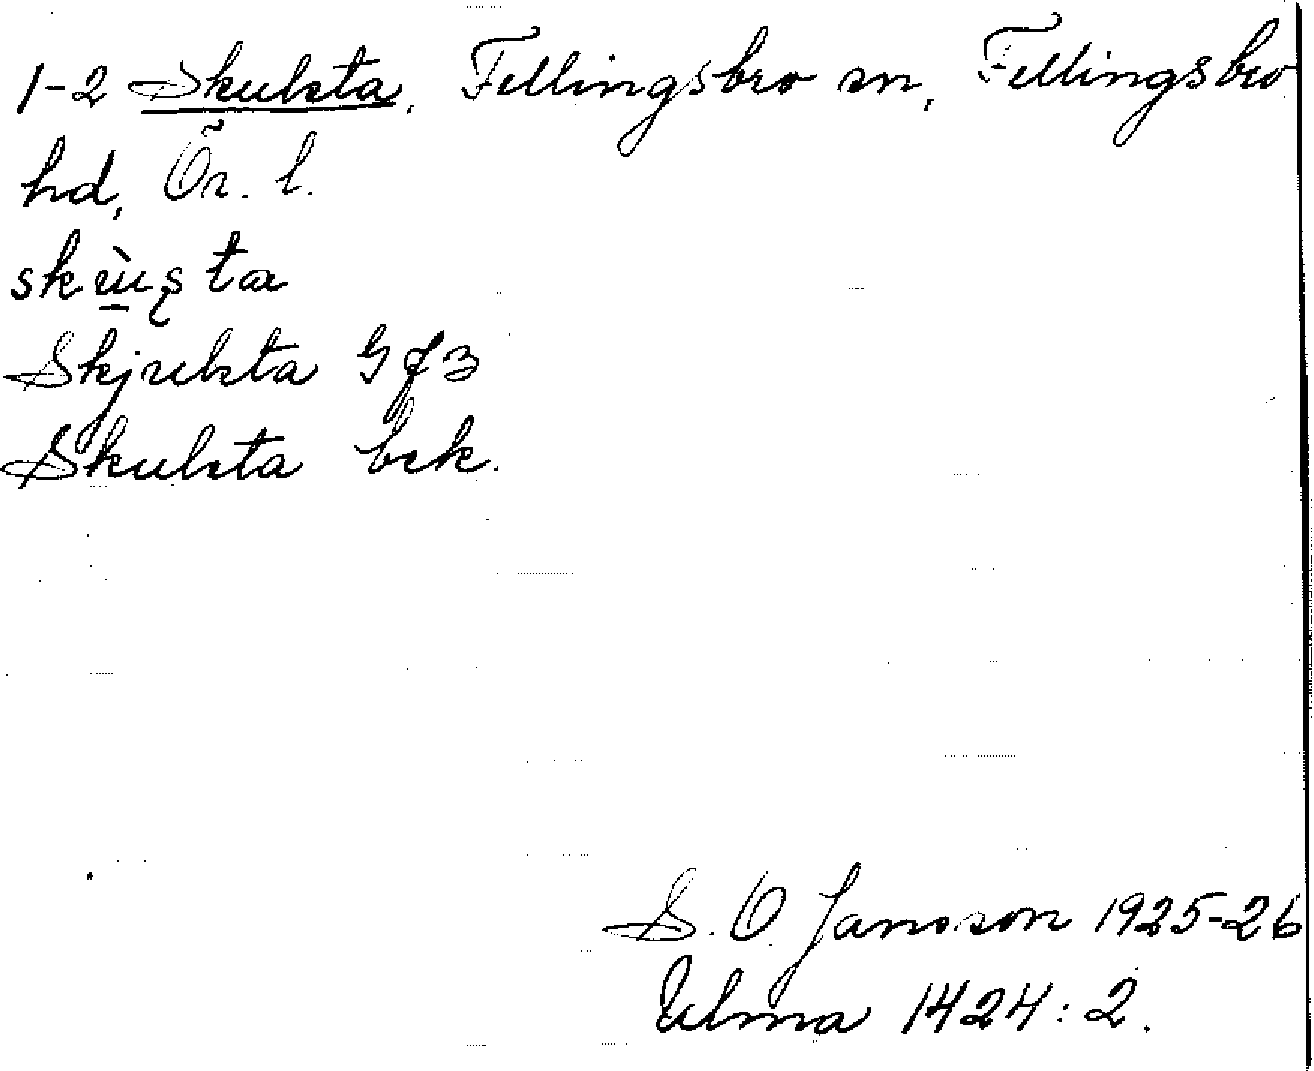 1-2 Skulsta, Fellingsbro sn, Fellingsbro
hd, Ör. l.
Skjulsta Gf3
Skulsta bek.
S. O. Jansson 1925-26
Ulma 1424:2.